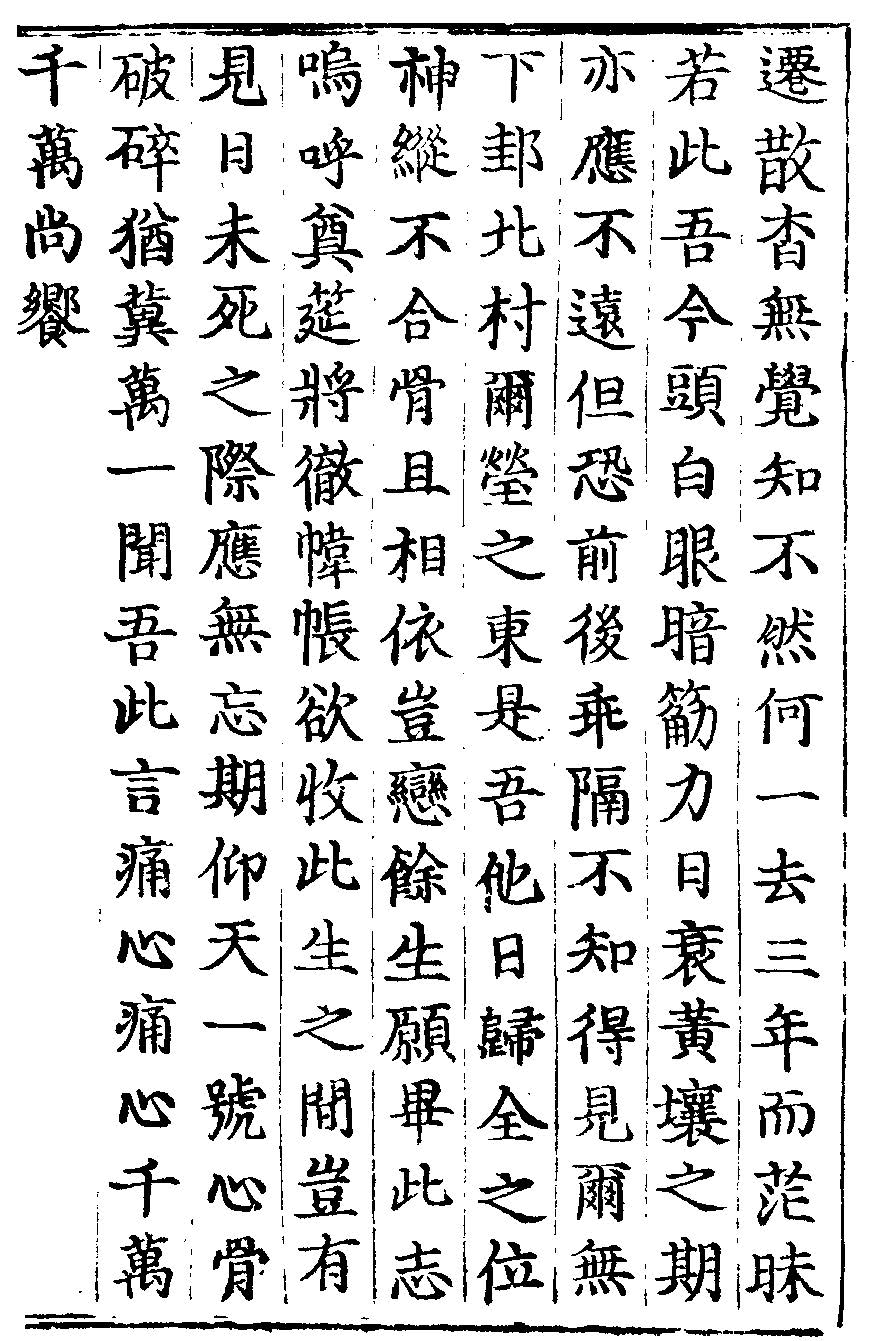 遷散杳無覺知不然何一去三年而茫昧
若此吾今頭白眼暗筋力日衰黃壤之期
亦應不遠但恐前後乖隔不知得見爾無
下邽北村爾塋之東是吾他日歸全之位
神縱不合骨且相依豈戀餘生願畢此志
嗚呼奠筵將徹幃帳欲收此生之間豈有
見日未死之際應無忘期仰天一號心骨
破碎猶冀萬一聞吾此言痛心痛心千萬
千萬尚饗